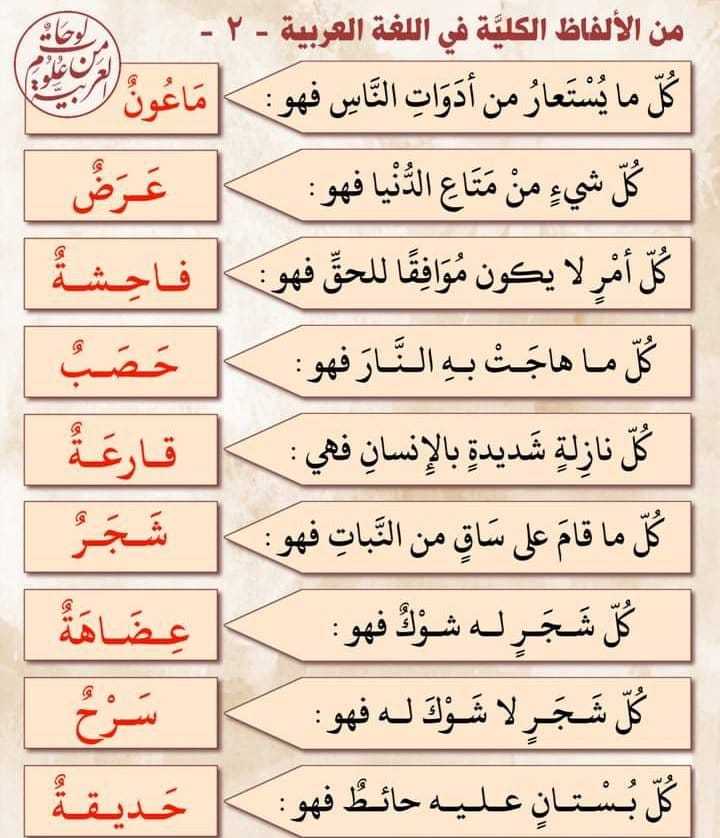 من الألفاظ الكليَّة في اللغة العربية - ٢ -
لوحاتٌ من علوم العربية
كُلّ ما يُسْتَعارُ من أدَوَاتِ النَّاسِ فهو : مَاعُونٌ
كُلّ شيءٍ منْ مَتَاعِ الدُّنْيا فهو : عَـرَضٌ
كُلّ أمْرٍ لا يكون مُوَافِقًا للحقِّ فهو : فـاحِـشـةٌ
كُلّ مـا هاجَـتْ بـهِ الـنَّـارَ فهو : حَـصَـبٌ
كُلّ نازِلةٍ شَديدةٍ بالإِنسانِ فهي : قـارعَـةٌ
كُلّ ما قامَ على سَاقٍ من النَّباتِ فهو : شَـجَـرٌ
كُلّ شَـجَـرٍ لـه شـوْكٌ فهو : عِـضَـاهَةٌ
كُلّ شَـجَـرٍ لا شَـوْكَ لـه فهو : سَـرْحٌ
كُلّ بُـسْـتـانٍ عـلـيـه حائـطٌ فهو : حَـديـقـةٌ